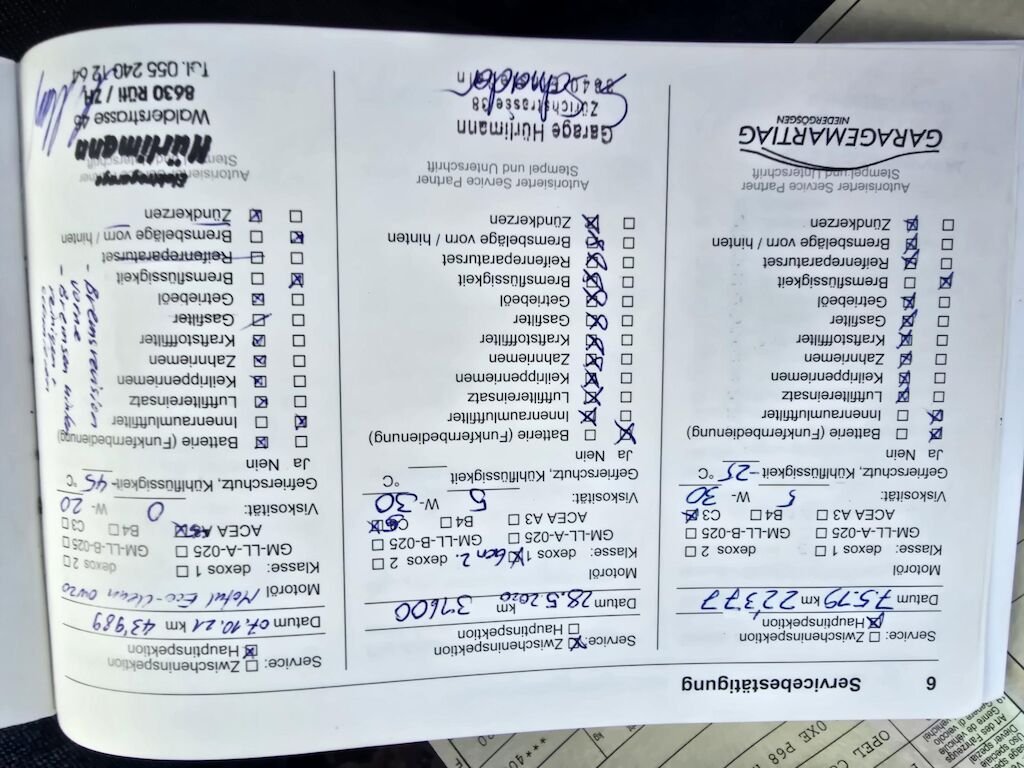 6 Servicebestätigung
Service: Zwischeninspektion
Hauptinspektion
Datum 7.5.19 km 22'377
Motoröl
Klasse: dexos 1 dexos 2
GM-LL-A-025 GM-LL-B-025
ACEA A3 B4 C3
Viskosität: 5 W- 30
Gefrierschutz, Kühlflüssigkeit -25 °C
Ja Nein
Batterie (Funkfernbedienung)
Innenraumluftfilter
Luftfiltereinsatz
Keilrippenriemen
Zahnriemen
Kraftstofffilter
Gasfilter
Getriebeöl
Bremsflüssigkeit
Reifenreparaturset
Bremsbeläge vorn / hinten
Zündkerzen
Autorisierter Service Partner
Stempel und Unterschrift
GARAGEMARTIAG
NIEDERGÖSGEN
Service: Zwischeninspektion
Hauptinspektion
Datum 28.5.2020 km 37600
Motoröl
Klasse: dexos 1 Gen 2. dexos 2
GM-LL-A-025 GM-LL-B-025
ACEA A3 B4
Viskosität: 5 W- 30
Gefrierschutz, Kühlflüssigkeit °C
Ja Nein
Batterie (Funkfernbedienung)
Innenraumluftfilter
Luftfiltereinsatz
Keilrippenriemen
Zahnriemen
Kraftstofffilter
Gasfilter
Getriebeöl
Bremsflüssigkeit
Reifenreparaturset
Bremsbeläge vorn / hinten
Zündkerzen
Autorisierter Service Partner
Stempel und Unterschrift
Garage Hürlimann
Zürichstrasse 38
Service: Zwischeninspektion
Hauptinspektion
Datum 07.10.21 km 43'989
Motoröl Motul Eco-clean 0W20
Klasse: dexos 1 dexos 2
GM-LL-A-025 GM-LL-B-025
ACEA B4 C3
Viskosität: 0 W- 20
Gefrierschutz, Kühlflüssigkeit -45 °C
Ja Nein
Batterie (Funkfernbedienung)
Innenraumluftfilter
Luftfiltereinsatz
Keilrippenriemen
Zahnriemen
Kraftstofffilter
Gasfilter
Getriebeöl
Bremsflüssigkeit
Reifenreparaturset
Bremsbeläge vorn / hinten
Zündkerzen
- Bremsrevision
vorne
- Bremsen hinten
reinigen +
Autorisierter Service Partner
Stempel und Unterschrift
Elektrogarage
Hürlimann
Walderstrasse 45
8630 Rüti / ZH
Tel. 055 240 12 64
Art des Fahrzeugs
Genre de véhicule
OPEL
OXE P68